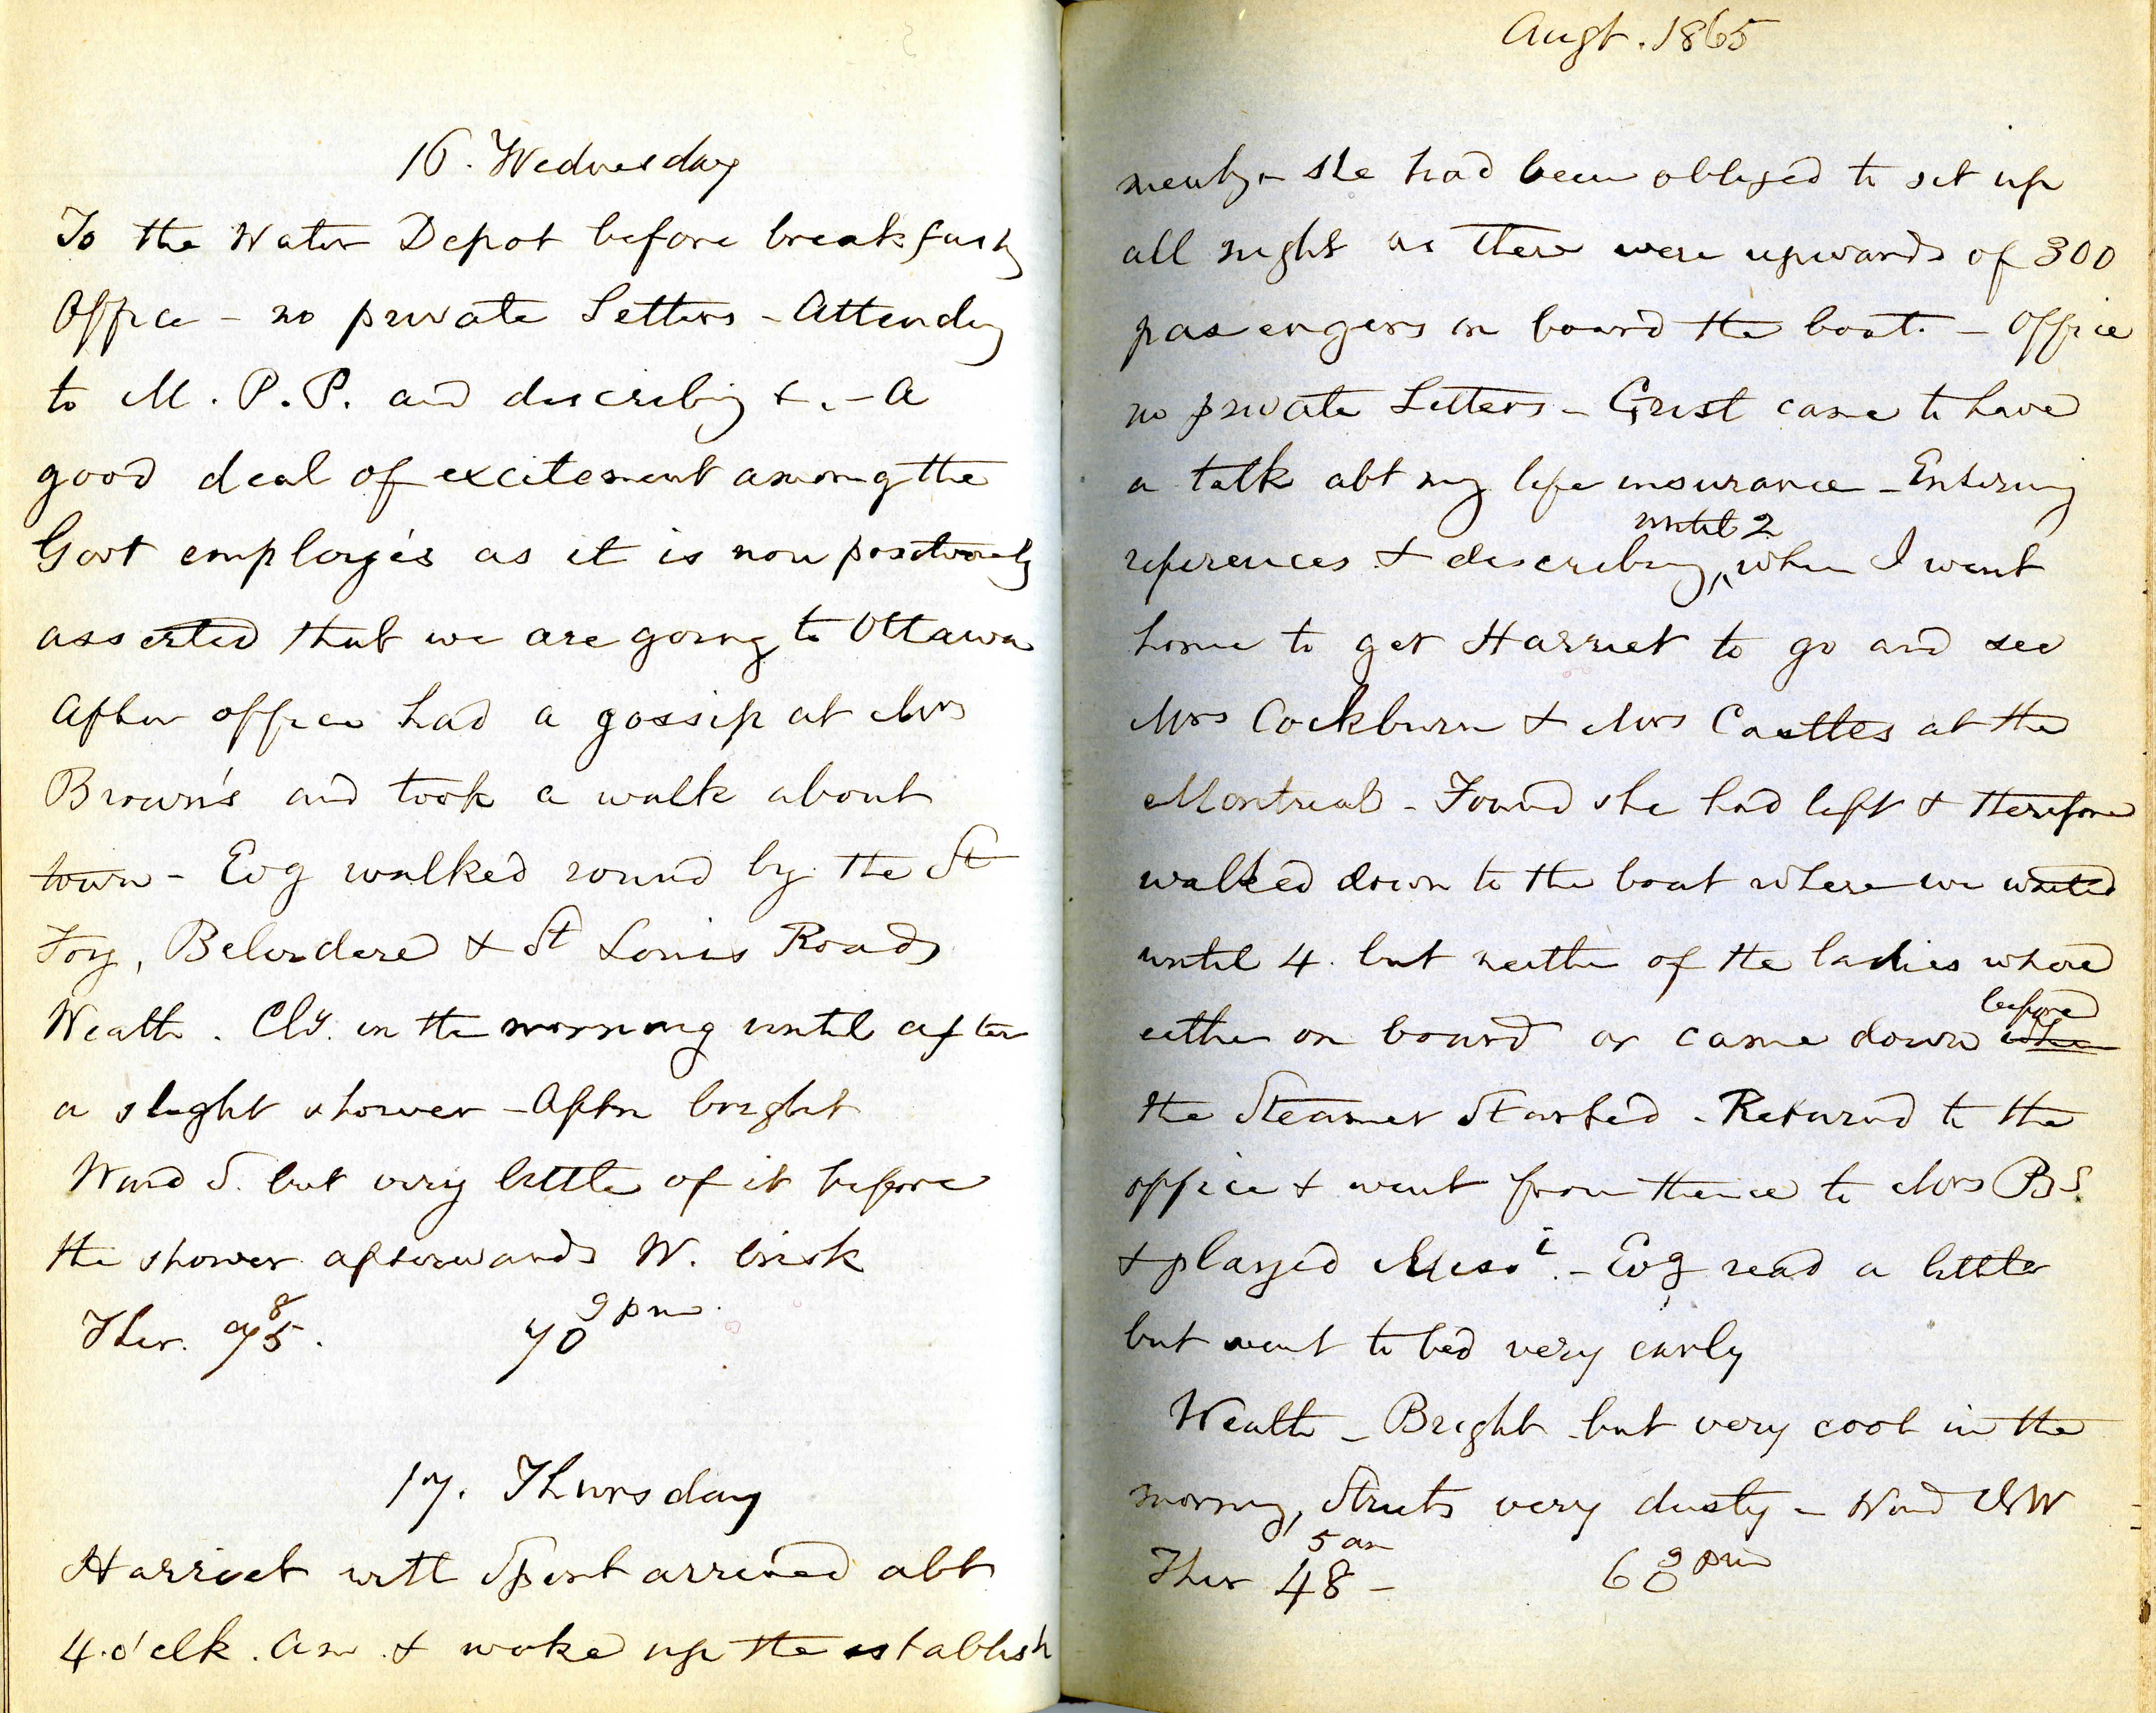 16. Wednesday
To the Water Depot before breakfast
Office - no private Letters - Attending
to M. P. P. and describing &c. - A
good deal of excitement among the
Govt employés as it is now positively
asserted that we are going to Ottawa
After office had a gossip at Mrs
Brown's and took a walk about
town - Evg walked round by the St
Foy, Belvidere & St Louis Roads
Weath. Cly. in the morning until after
a slight shower - Aftn bright
Wind S. but very little of it before
the shower afterwards W. brisk
8 9 pm
Ther. 75. 70
17. Thursday
Harriet with arrived abt
4. o'clk. am. & woke up the establish
Augt. 1865
ment, - she had been obliged to set up
all night as there were upwards of 300
passengers on board the boat. - Office
no private Letters - Grist came to have
a talk abt my life insurance - Entering
until 2
references & describing, when I went
home to get Harriet to go and see
Mrs Cockburn & Mrs Castles at the
Montreal - Found she had left & therefore
walked down to the boat where we waited
until 4. but neither of the ladies where
before
either on board or came down when
the Steamer Started - Returned to the
office & went from thence to Mrs Bs.
& played - Evg read a little
but went to bed very early
Weath - Bright but very cool in the
morning, Streets very dusty - Wind NW
5 am 9 pm
Ther 48 - 60